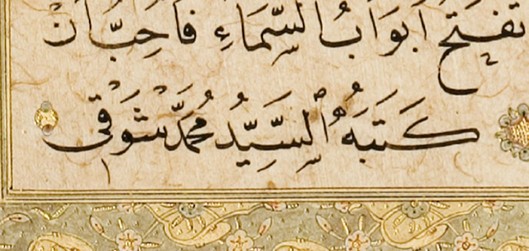 تُفْتَحُ أَبْوَابُ السَّمَاءِ فَأُحِبُّ أَنْ
كَتَبَهُ السَّيِّدُ مُحَمَّد شَوْقِي